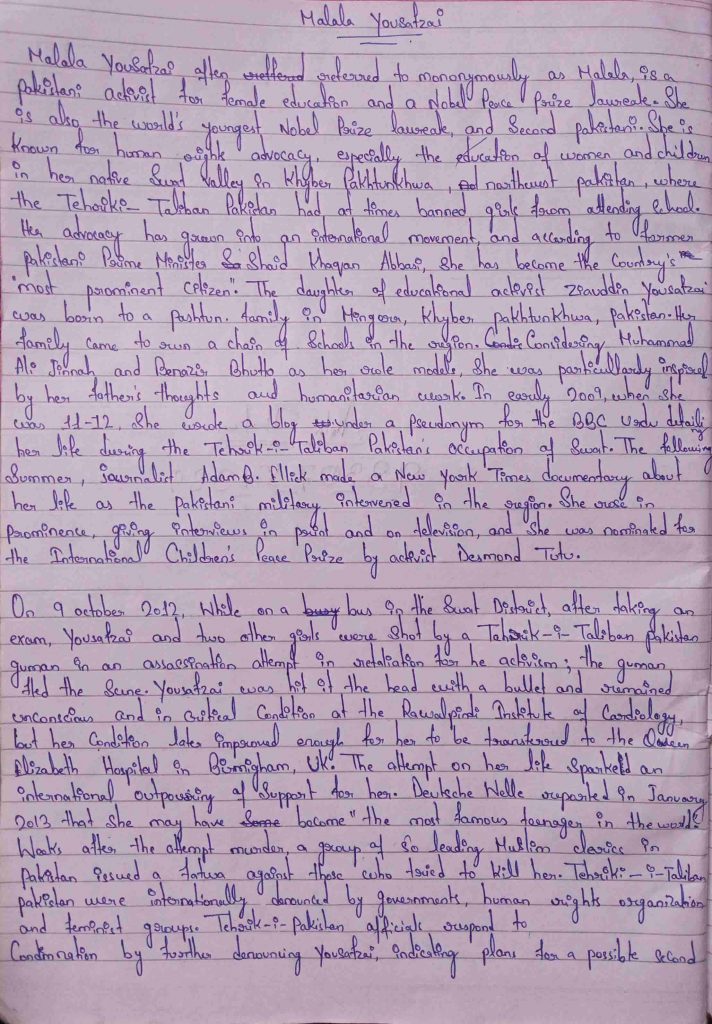 Malala Yousafzai
Malala Yousafzai often referred to mononymously as Malala, is a
pakistani activist for female education and a Nobel Peace Prize laureate. She
is also the world's youngest Nobel Prize laureate, and Second pakistani. She is
known for human right advocacy, especially the education of women and children
in her native Swat Valley in Khyber Pakhtunkhwa, northwest pakistan, where
the Tehriki- Taliban Pakistan had at times banned girls from attending School.
Her advocacy has grown into an international movement, and according to former
pakistani Prime Minister Shaid Khaqan Abbasi, She has become the Country's
"most prominent citizen". The daughter of educational activist Ziauddin Yousafzai
was born to a pashtun. family in Mingora, Khyber pakhtunkhwa, pakistan. Her
family came to run a chain of Schools in the region. Considering Muhammad
Ali Jinnah and Benazir Bhutto as her role models, She was particullarly inspired
by her father's thoughts and humanitarian work. In early 2009, when she
was 11-12, She wrote a blog under a Pseudonym for the BBC Urdu detailing
her life during the Tehrik-i-Taliban Pakistan's occupation of Swat. The following
Summer, journalist Adam B. Ellick made a New York Times documentary about
her life as the pakistani military intervened in the region. She rose in
prominence, giving interviews in print and on television, and She was nominated for
the International Children's Peace Prize by activist Desmond Tutu.
On 9 october 2012, While on a bus in the Swat District, after taking an
exam, Yousafzai and two other girls were Shot by a Tehrik-i-Taliban pakistan
gunman in an assassination attempt in retaliation for he activism; the gunman
fled the Scene. Yousafzai was hit it the head with a bullet and remained
unconscious and in critical Condition at the Rawalpindi Institute of Cardiology,
but her Condition later improved enough for her to be transferred to the Queen
Elizabeth Hospital in Birmigham, UK. The attempt on her life Sparkeld an
international outpouring of Support for her. Deutsche Welle reported in January
2013 that She may have become "the most famous teenager in the world".
Weeks after the attempt murder, a group of 50 leading Muslim clerics in
Pakistan issued a fatwa against those who tried to kill her. Tehriki-i-Taliban
pakistan were internationally denounced by governments, human rights organization
and feminist groups. Tehrik-i-Pakistan officials respond to
Condimnation by further denouncing Yousafzai, indicating plans for a possible second